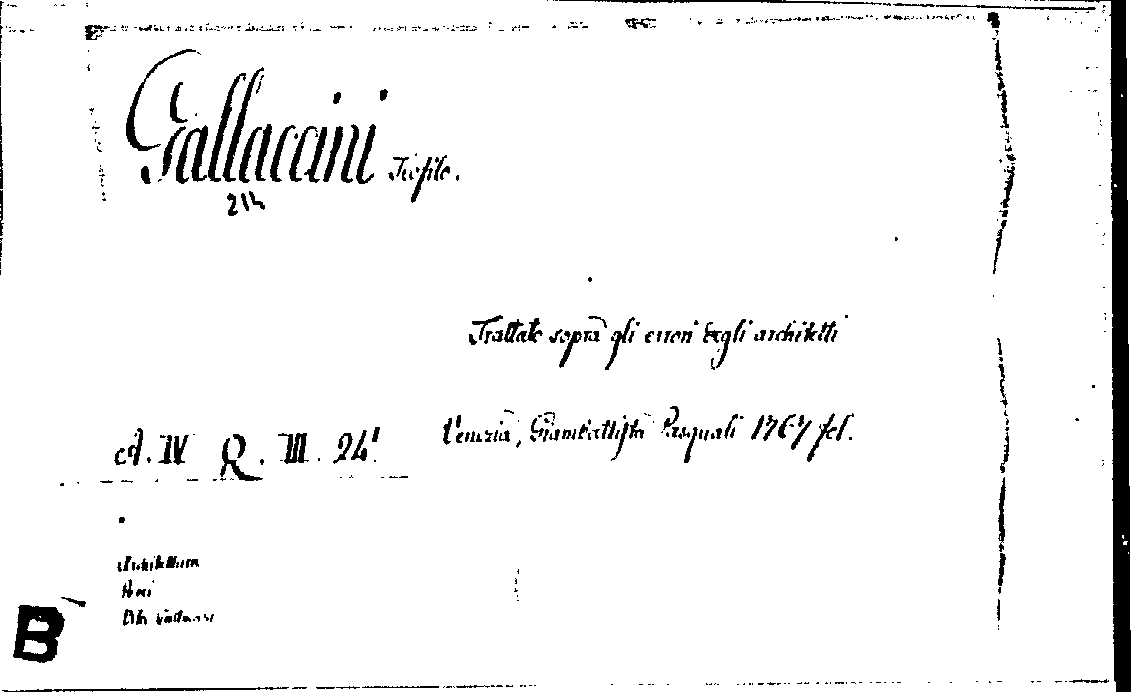 Gallaccini Teofilo.
214
Trattato sopra gli errori degli architetti
Venezia, Giambattista Pasquali 1767 fol.
A. IV Q. III. 24'
Architettura
B